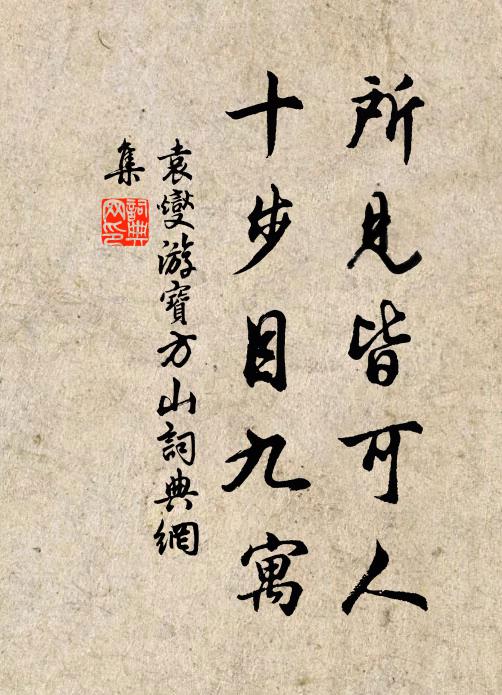 所見皆可人
十步目九寓
袁燮游寶方山詞典網
集
詞典
網印